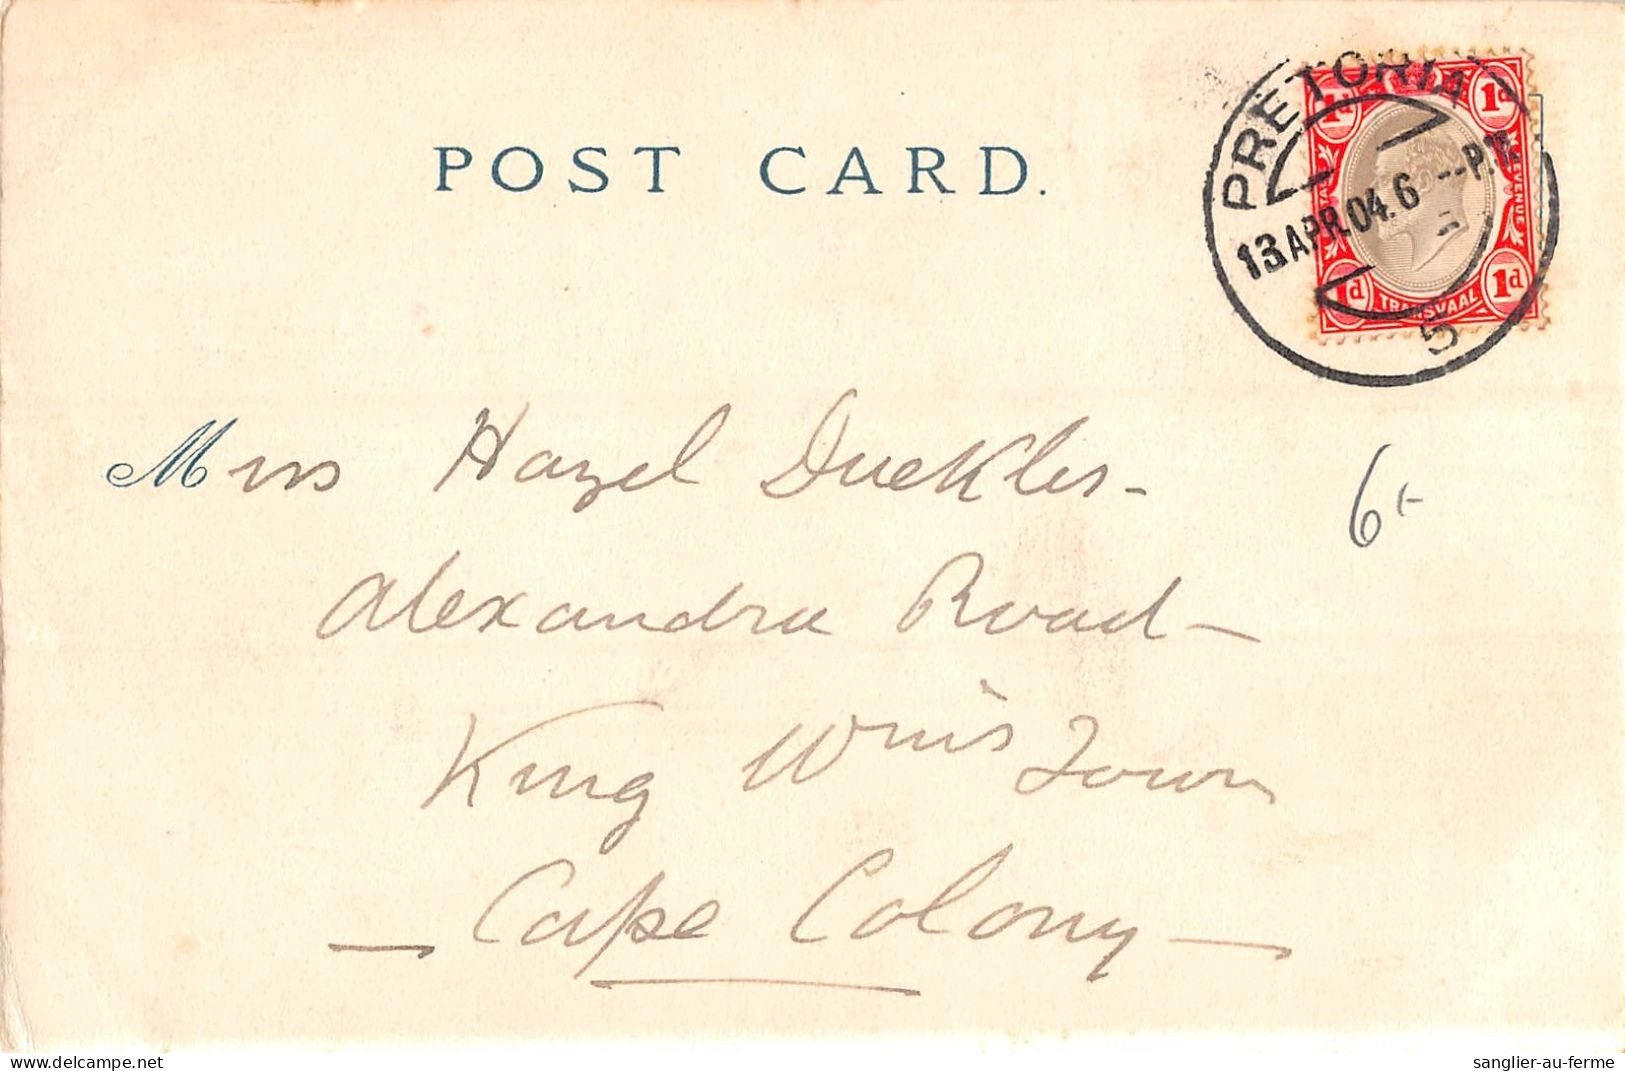 POST CARD.
PRETORIA
13.APR.04.6 --P.M
5
1d 1d
REVENUE
1d 1d
TRANSVAAL
Miss Hazel Duckles -
Alexandra Road -
King Wm's Town
- Cape Colony -
6
delcampe.net
sanglier-au-ferme